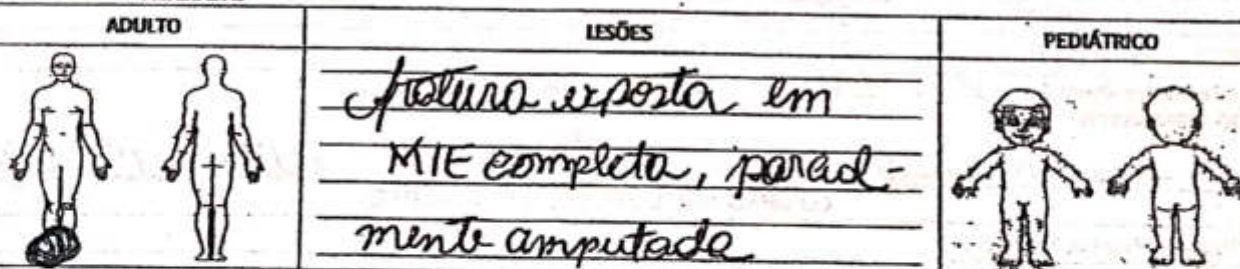 ADULTO
LESÕES
PEDIÁTRICO
fratura exposta em
MIE completa, parcial-
mente amputada